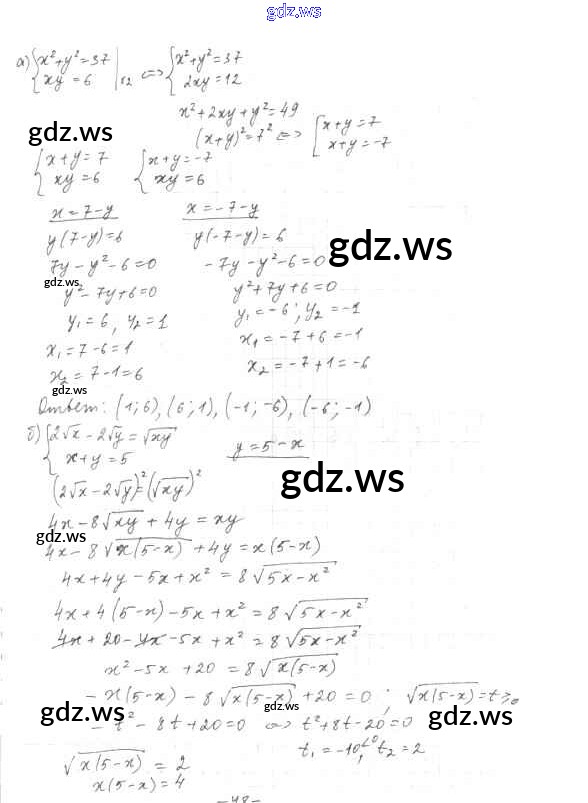 gdz.ws
а) { x²+y²=37 | <=> { x²+y²=37
{ xy = 6 | ·2 { 2xy = 12
x²+2xy+y²=49
(x+y)²=7² <=> [ x+y=7
gdz.ws [ x+y=-7
{ x+y=7 { x+y=-7
{ xy=6 { xy=6
x=7-y x=-7-y
y(7-y)=6 y(-7-y)=6 gdz.ws
7y-y²-6=0 -7y-y²-6=0
gdz.ws
y²-7y+6=0 y²+7y+6=0
y₁=6, y₂=1 y₁=-6; y₂=-1
x₁=7-6=1 x₁=-7+6=-1
x₂=7-1=6 x₂=-7+1=-6
gdz.ws
Ответ: (1;6), (6;1), (-1;-6), (-6;-1)
б) { 2√x - 2√y = √xy y=5-x
{ x+y=5
gdz.ws
(2√x-2√y)²=(√xy)²
4x-8√xy+4y=xy
gdz.ws
4x-8√x(5-x)+4y=x(5-x)
4x+4y-5x+x²=8√5x-x²
4x+4(5-x)-5x+x²=8√5x-x²
4x+20-4x-5x+x²=8√5x-x²
x²-5x+20=8√x(5-x)
-x(5-x)-8√x(5-x)+20=0; √x(5-x)=t≥0
gdz.ws gdz.ws gdz.ws
-t²-8t+20=0 <=> t²+8t-20=0
t₁=-10<0, t₂=2
√x(5-x)=2
x(5-x)=4
-48-